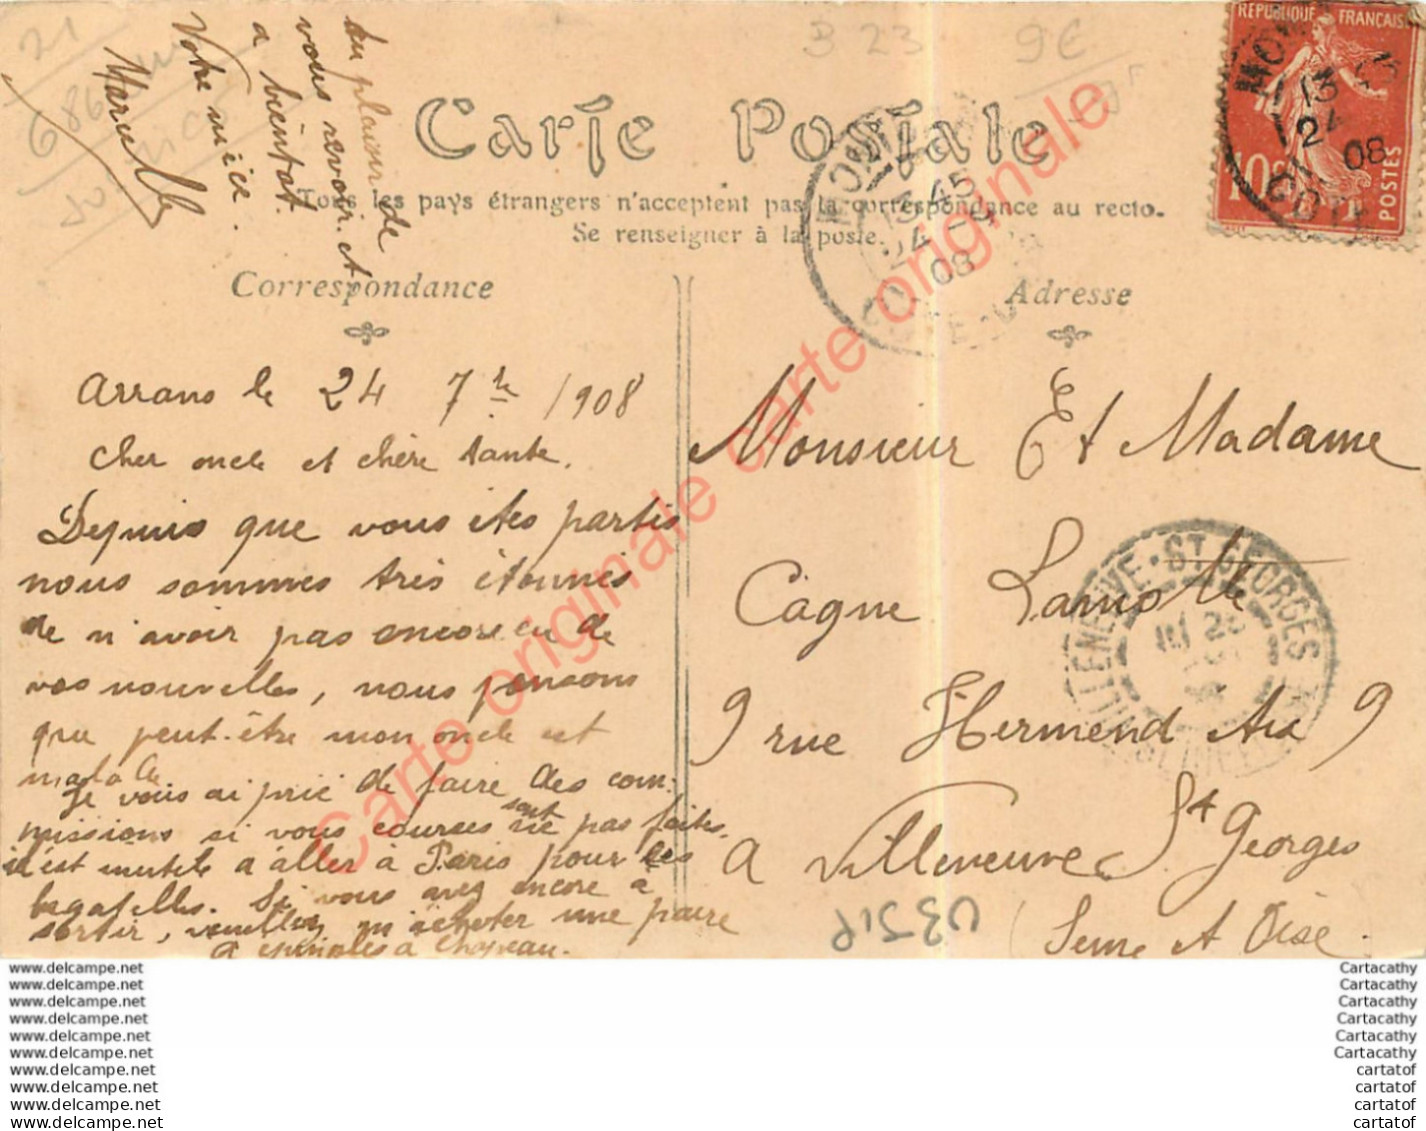 au plaisir de
vous revoir et
a bientot.
Votre nièce.
Marcelle
21
B 23
9€
Carte Postale
Tous les pays étrangers n'acceptent pas la correspondance au recto.
Se renseigner à la poste.
Correspondance
Adresse
REPUBLIQUE FRANÇAISE
10c
POSTES
13 45
24
08
arrans le 24 7bre 1908
Cher oncle et chère tante.
Depuis que vous êtes partis
nous sommes très étonnés
de n'avoir pas encore eu de
vos nouvelles, nous pensons
que peut-être mon oncle est
malade
Je vous ai prié de faire des com-
missions si vous courses ne sont pas faites,
il est inutile a aller à Paris pour ces
bagatelles. Si vous avez encore à
sortir, veuillez m'acheter une paire
a épingles a chapeau.
Monsieur Et Madame
Cagne Lamotte
9 rue Hermend 9
a Villeneuve St Georges
(Seine et Oise.
VILLENEUVE-ST GEORGES
Carte originale carte originale
www.delcampe.net
www.delcampe.net
www.delcampe.net
www.delcampe.net
www.delcampe.net
www.delcampe.net
www.delcampe.net
www.delcampe.net
www.delcampe.net
www.delcampe.net
Cartacathy
Cartacathy
Cartacathy
Cartacathy
Cartacathy
Cartacathy
cartatof
cartatof
cartatof
cartatof